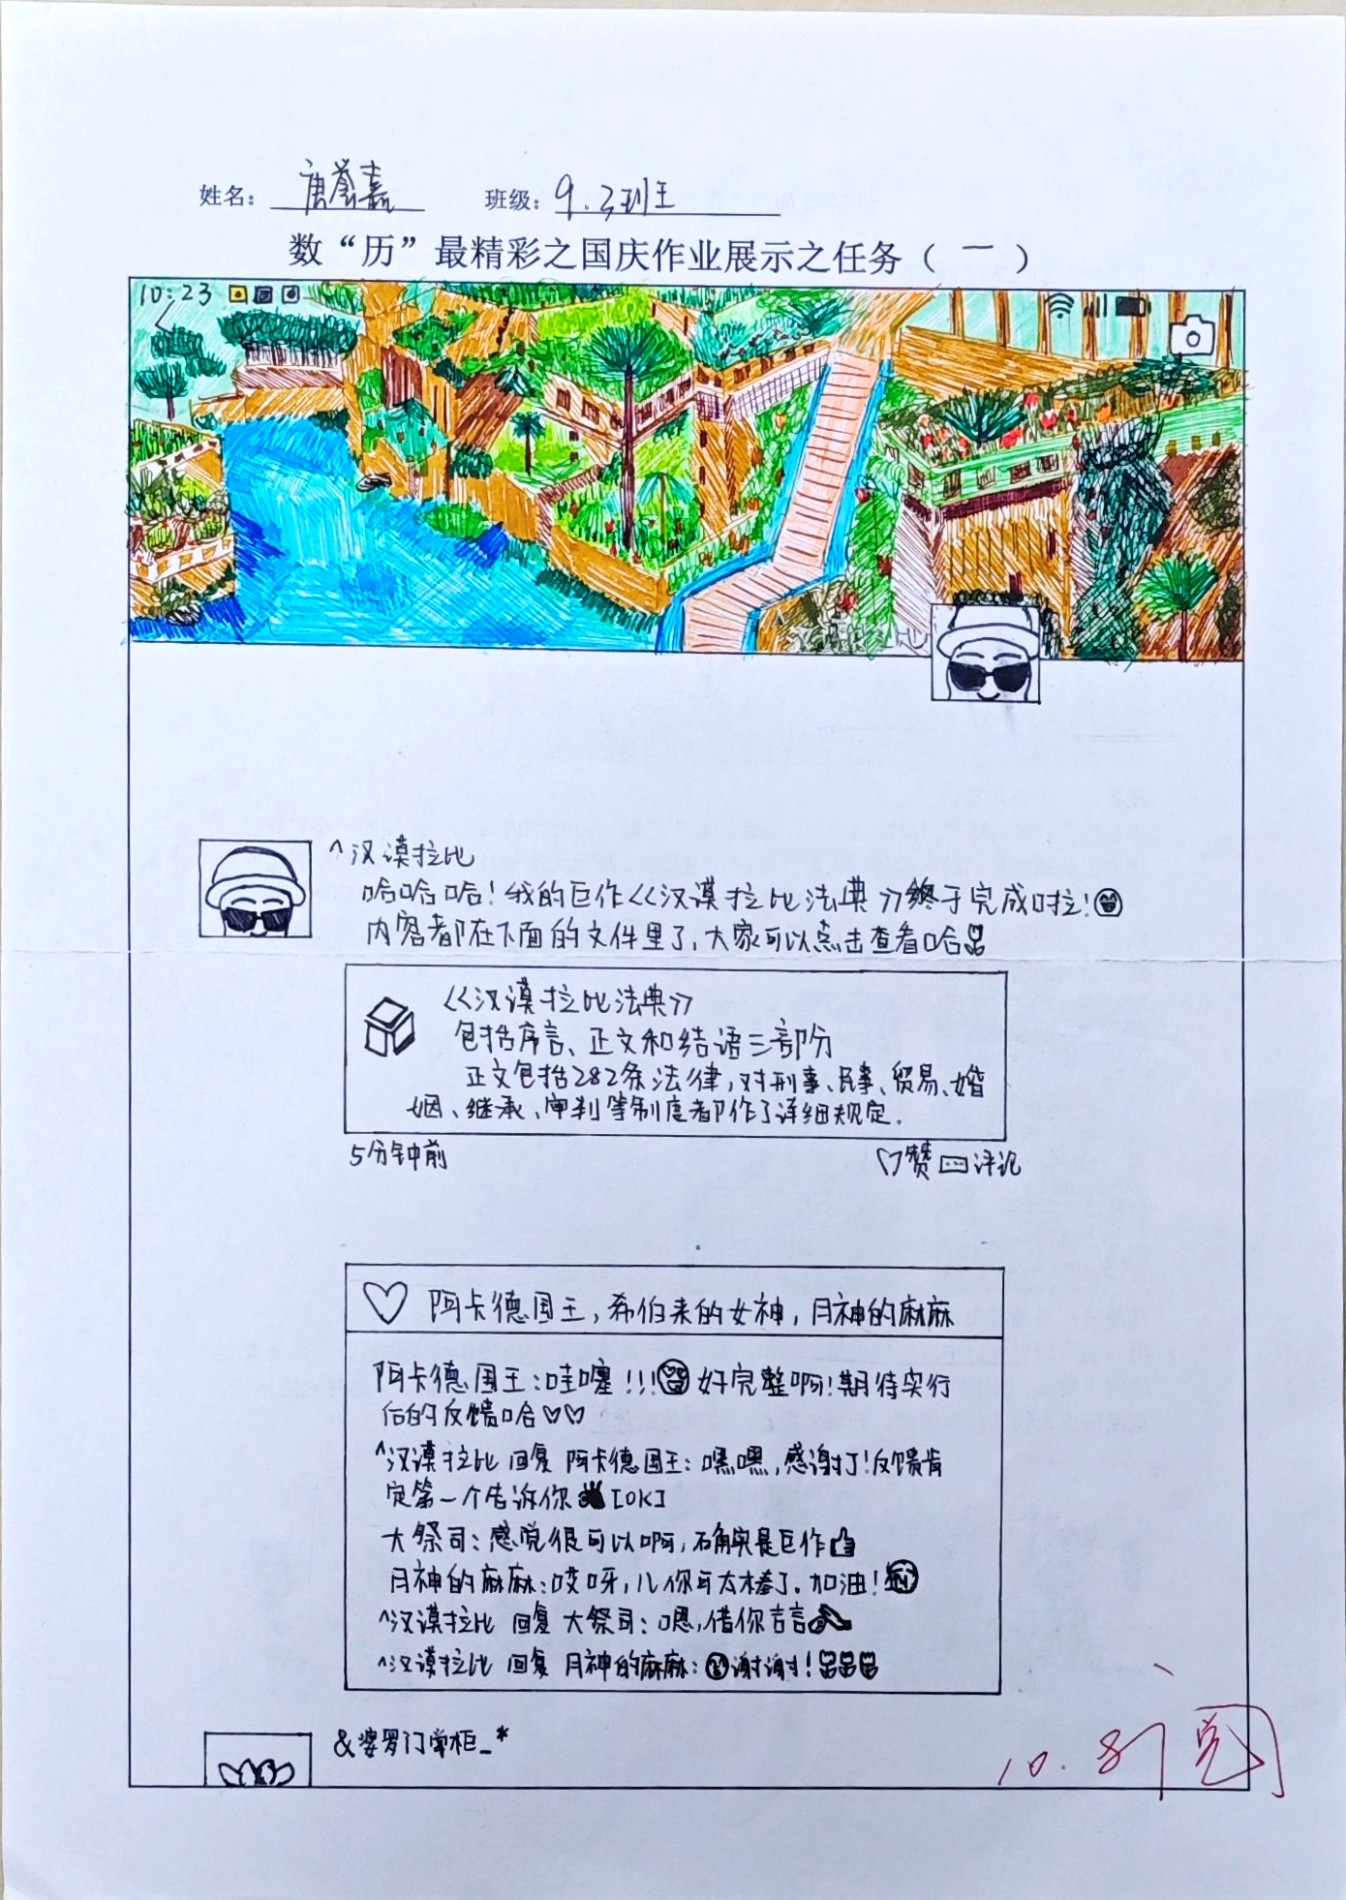 姓名： 唐誉嘉 班级： 9.3班王
数“历”最精彩之国庆作业展示之任务（ 一 ）
10:23
^汉谟拉比
哈哈哈！我的巨作《汉谟拉比法典》终于完成啦！
内容都在下面的文件里了，大家可以点击查看哈
《汉谟拉比法典》
包括序言、正文和结语三部份
正文包括282条法律，对刑事、民事、贸易、婚
姻、继承、审判等制度都作了详细规定.
5分钟前
赞 评论
阿卡德国王，希伯来的女神，月神的麻麻
阿卡德国王：哇噻！！！好完整啊！期待实行
后的反馈哈
^汉谟拉比 回复 阿卡德国王：嘿嘿，感谢！反馈肯
定第一个告诉你[OK]
大祭司：感觉很可以啊，确实是巨作
月神的麻麻：哎呀，儿你可太棒了.加油！
^汉谟拉比 回复 大祭司：嗯，借你吉言
^汉谟拉比 回复 月神的麻麻：谢谢！
&婆罗门掌柜_*
10.8